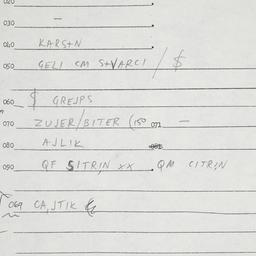 020
030 —
040 KARSTN
050 GELI CM STVARCI / $
060 $ GREJPS
070 ZUJER/BITER (150 071 —
080 AJLIK 081
090 QF SITRIN XX . QM CITRIN
069 CAJTIK